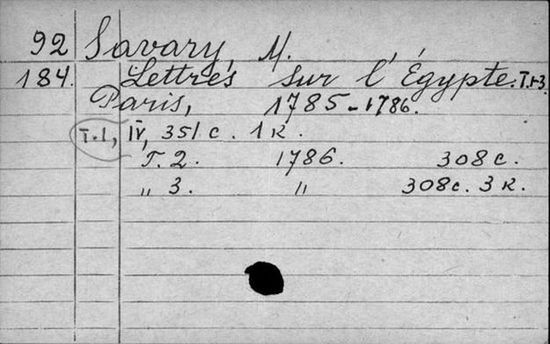 92 Savary, M.
184. Lettres sur l'Égypte. T.1-3
Paris, 1785-1786.
T.1, IV, 351 c. 1 к.
T. 2. 1786. 308 c.
„ 3. „ 308 c. 3 к.